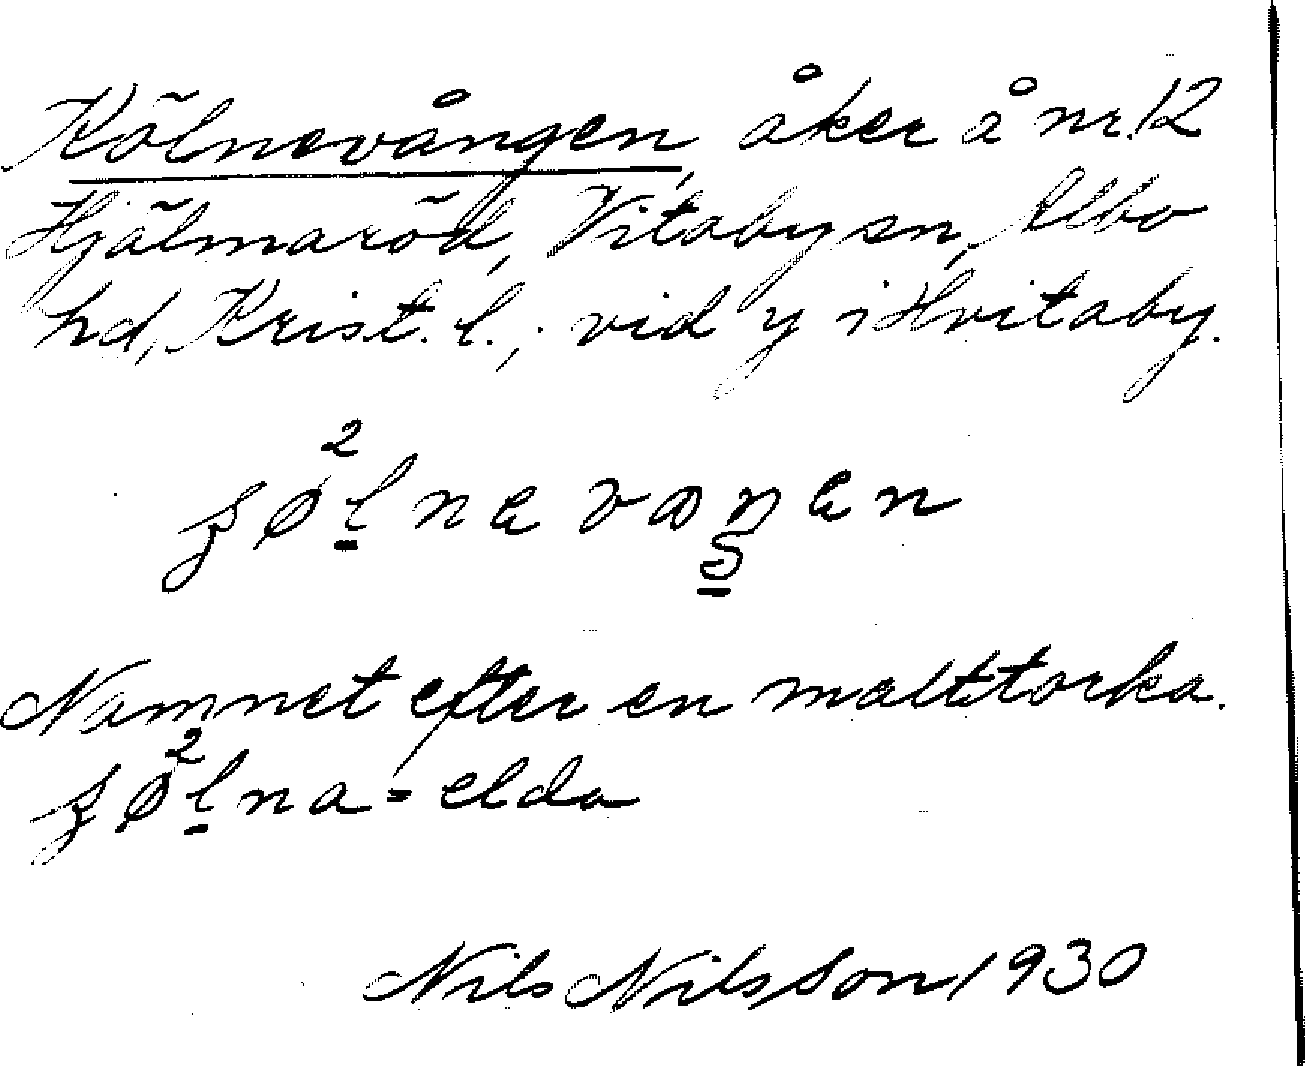 Kölnevången, åker å nr. 12
Hjälmaröd, Vitaby sn, Albo
hd, Krist. l.; vid y i Hvitaby.
Namnet efter en malttorka.
= elda
Nils Nilsson 1930